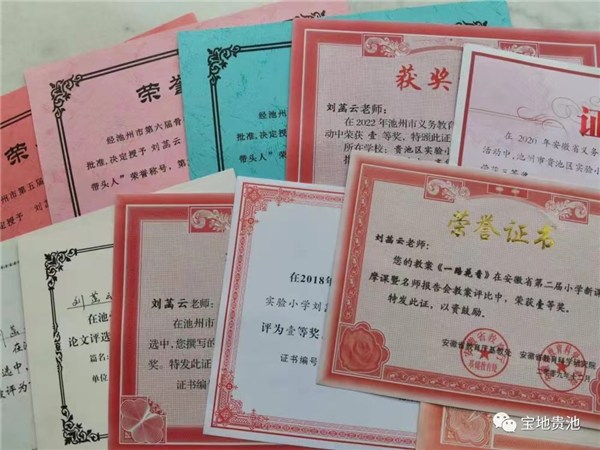 荣誉
经池州市第六届骨
批准,决定授予 刘蒿云
带头人”荣誉称号,第
经池州
批准,决定
带头人”
池州市第五届
授予 刘
获奖
刘蒿云老师:
在 2022 年池州市义务教育
动中荣获 壹 等奖,特颁此证
所在学校:贵池区实验小
证
在 2020 年安徽省义务
活动中,池州市贵池区实验小
荣誉证书
刘蒿云老师:
您的教案《一路花香》在安徽省第二届小学新课
摩课暨名师报告会教案评比中,荣获壹等奖。
特发此证,以资鼓励。
安徽省教育厅基教处 安徽省教育科学研究院
在2018年
实验小学刘
评为壹等奖
证书编号
刘蒿云老师:
在池州市
选中,您撰写的
奖。特发此证
证书编
在池
论文评选
篇名:
单位
宝地贵池